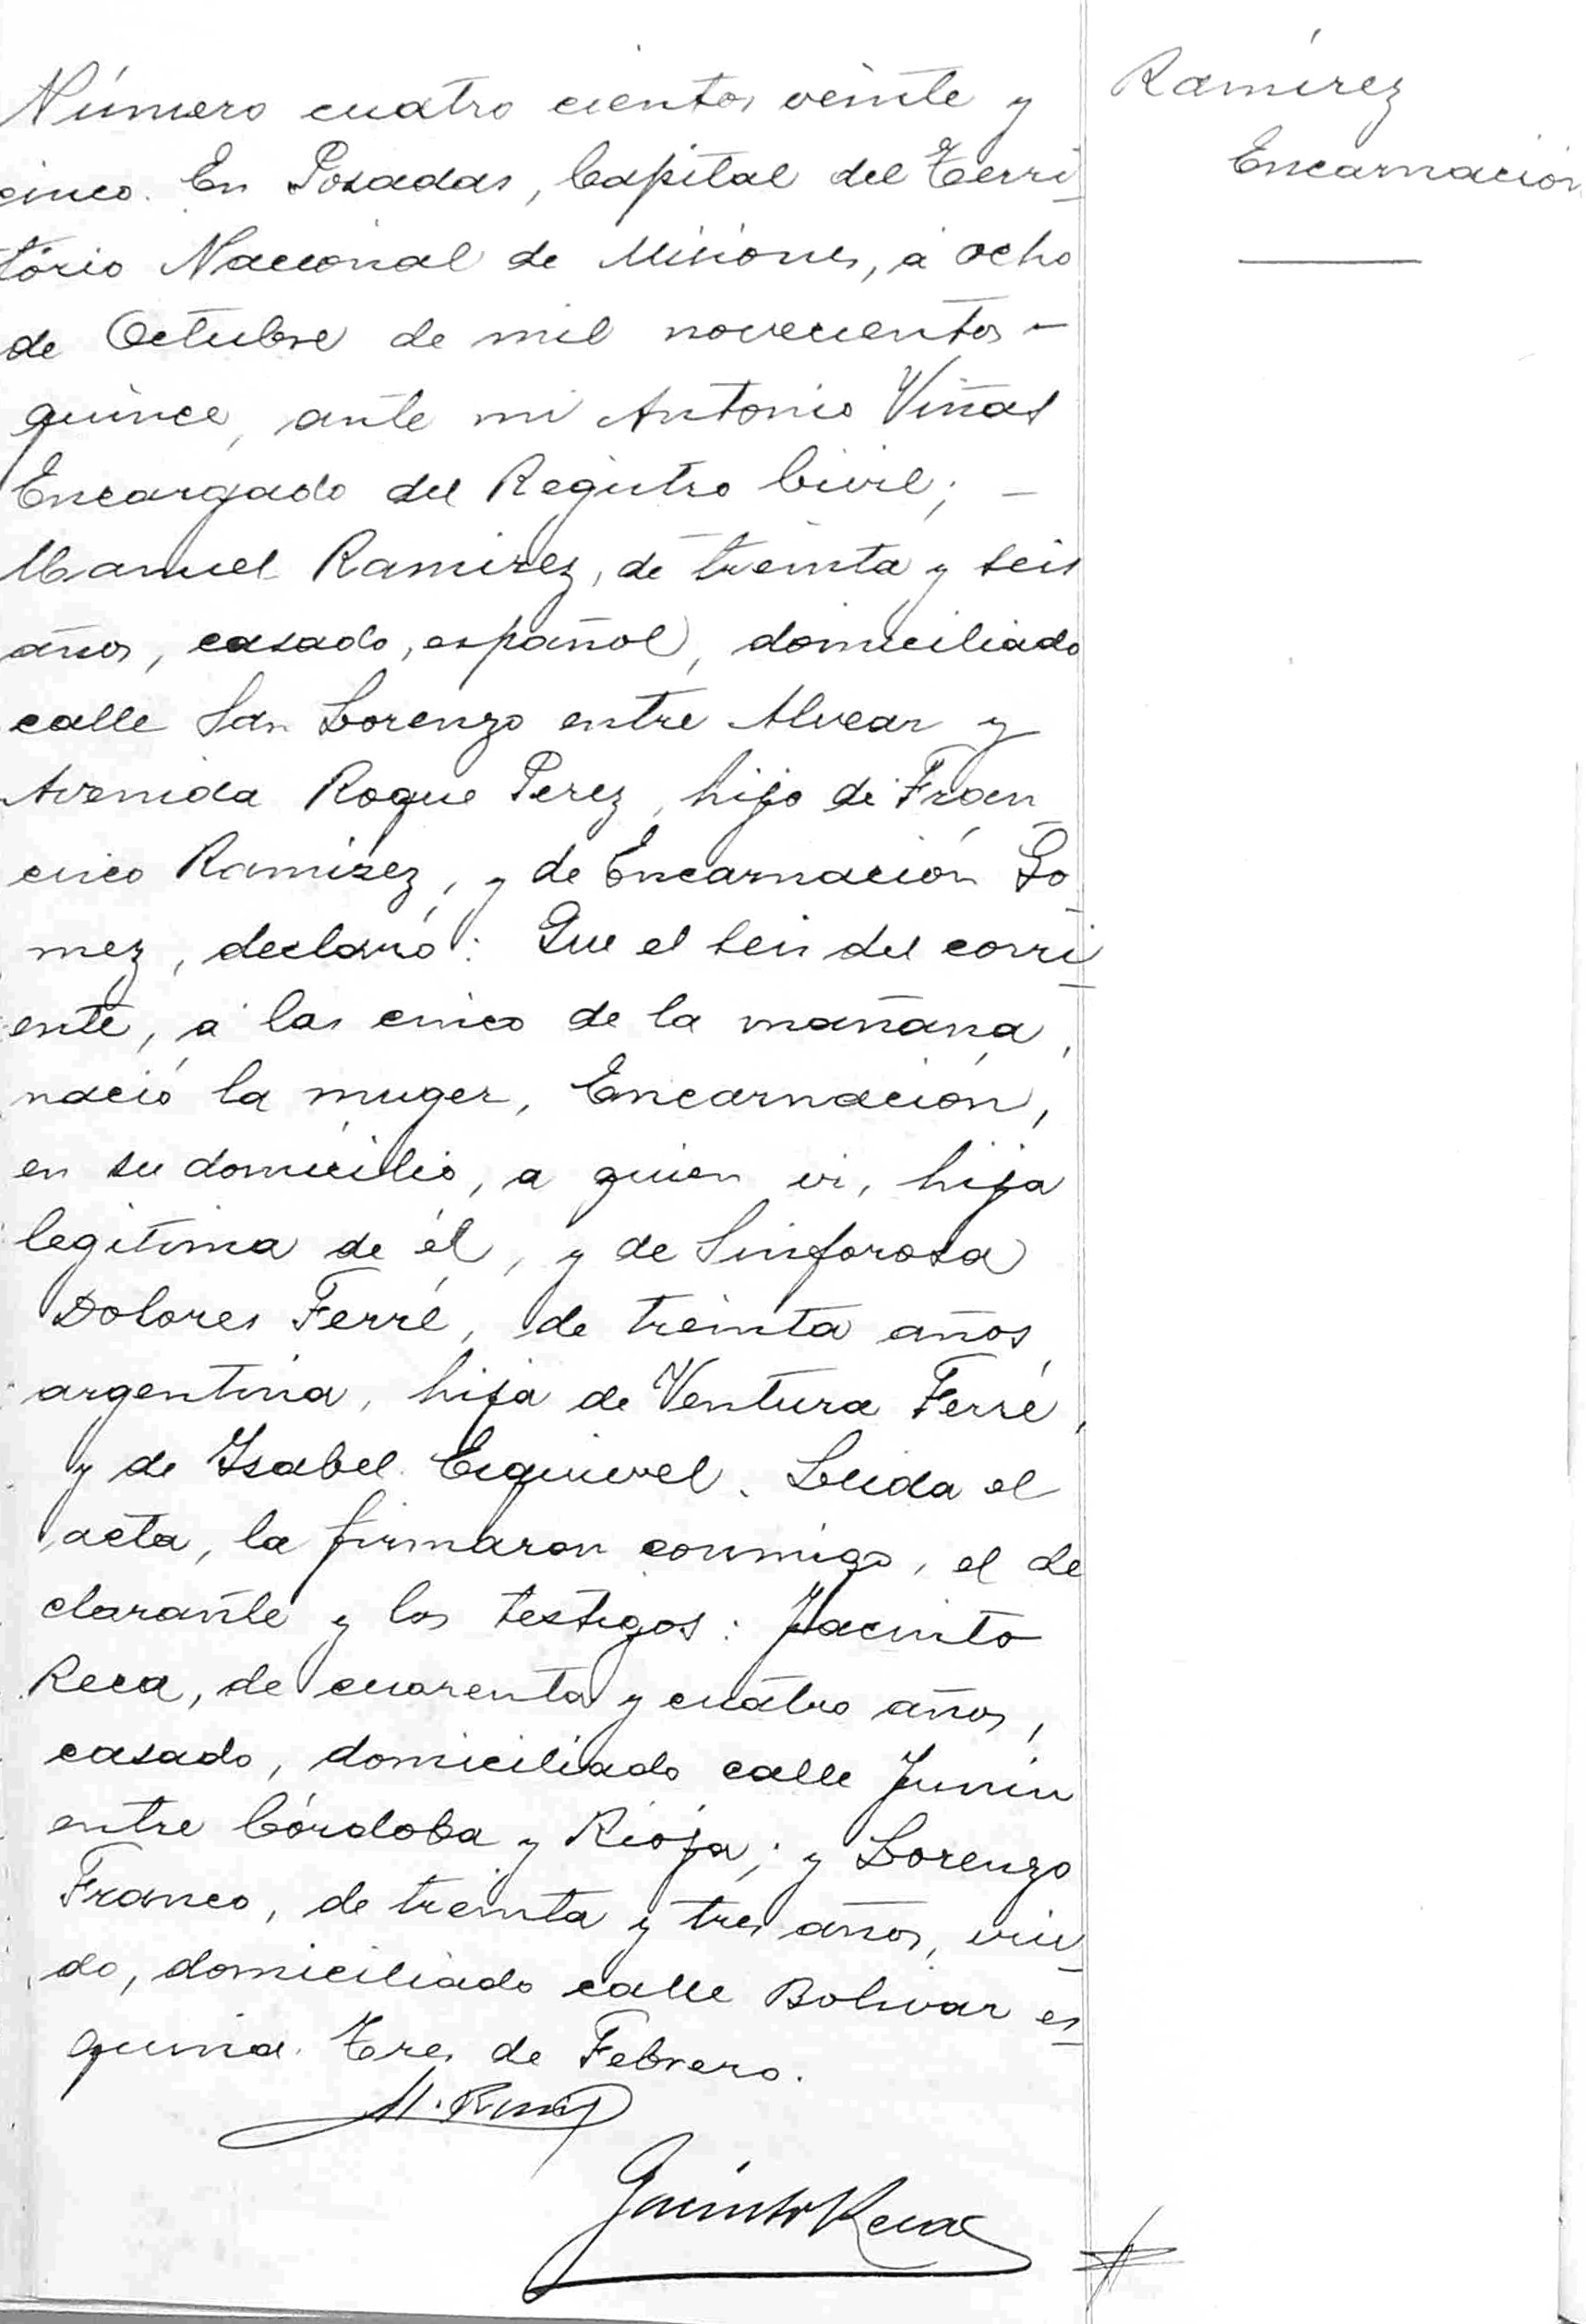 Número cuatro cientos veinte y
cinco. En Posadas, Capital del Terri
torio Nacional de Misiones, á ocho
de Octubre de mil novecientos -
quince, ante mi Antonio Viñas
Encargado del Registro Civil; -
Manuel Ramirez, de treinta y seis
años, casado, español, domiciliado
calle San Lorenzo entre Alvear y
Avenida Roque Perez, hijo de Fran
cisco Ramirez, y de Encarnación Go
mez, declaró: Que el seis del corri
ente, á las cinco de la mañana,
nació la muger, Encarnación,
en su domicilio, a quien vi, hija
legitima de él, y de Sinforosa
Dolores Ferré, de treinta años,
argentina, hija de Ventura Ferré,
y de Ysabel Esquivel. Leida el
acta, la firmaron conmigo, el de
clarante y los testigos: Jacinto
Reca, de cuarenta y cuatro años,
casado, domiciliado calle Junin
entre Córdoba y Rioja; y Lorenzo
Franco, de treinta y tres años, viu
do, domiciliado calle Bolivar es
quina Tres de Febrero.
Jacinto Reca
Ramírez
Encarnación